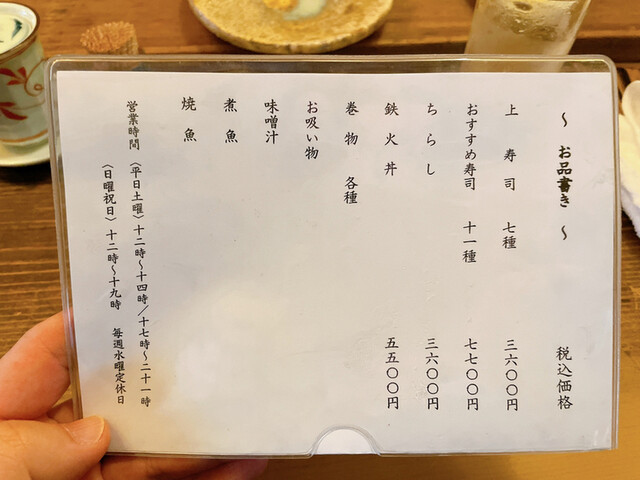 ～ お品書き ～ 税込価格
上 寿司 七種 三六〇〇円
おすすめ寿司 十一種 七七〇〇円
ちらし 三六〇〇円
鉄火丼 五五〇〇円
巻物 各種
お吸い物
味噌汁
煮魚
焼魚
営業時間 （平日土曜）十二時～十四時／十七時～二十一時
（日曜祝日）十二時～十九時 毎週水曜定休日